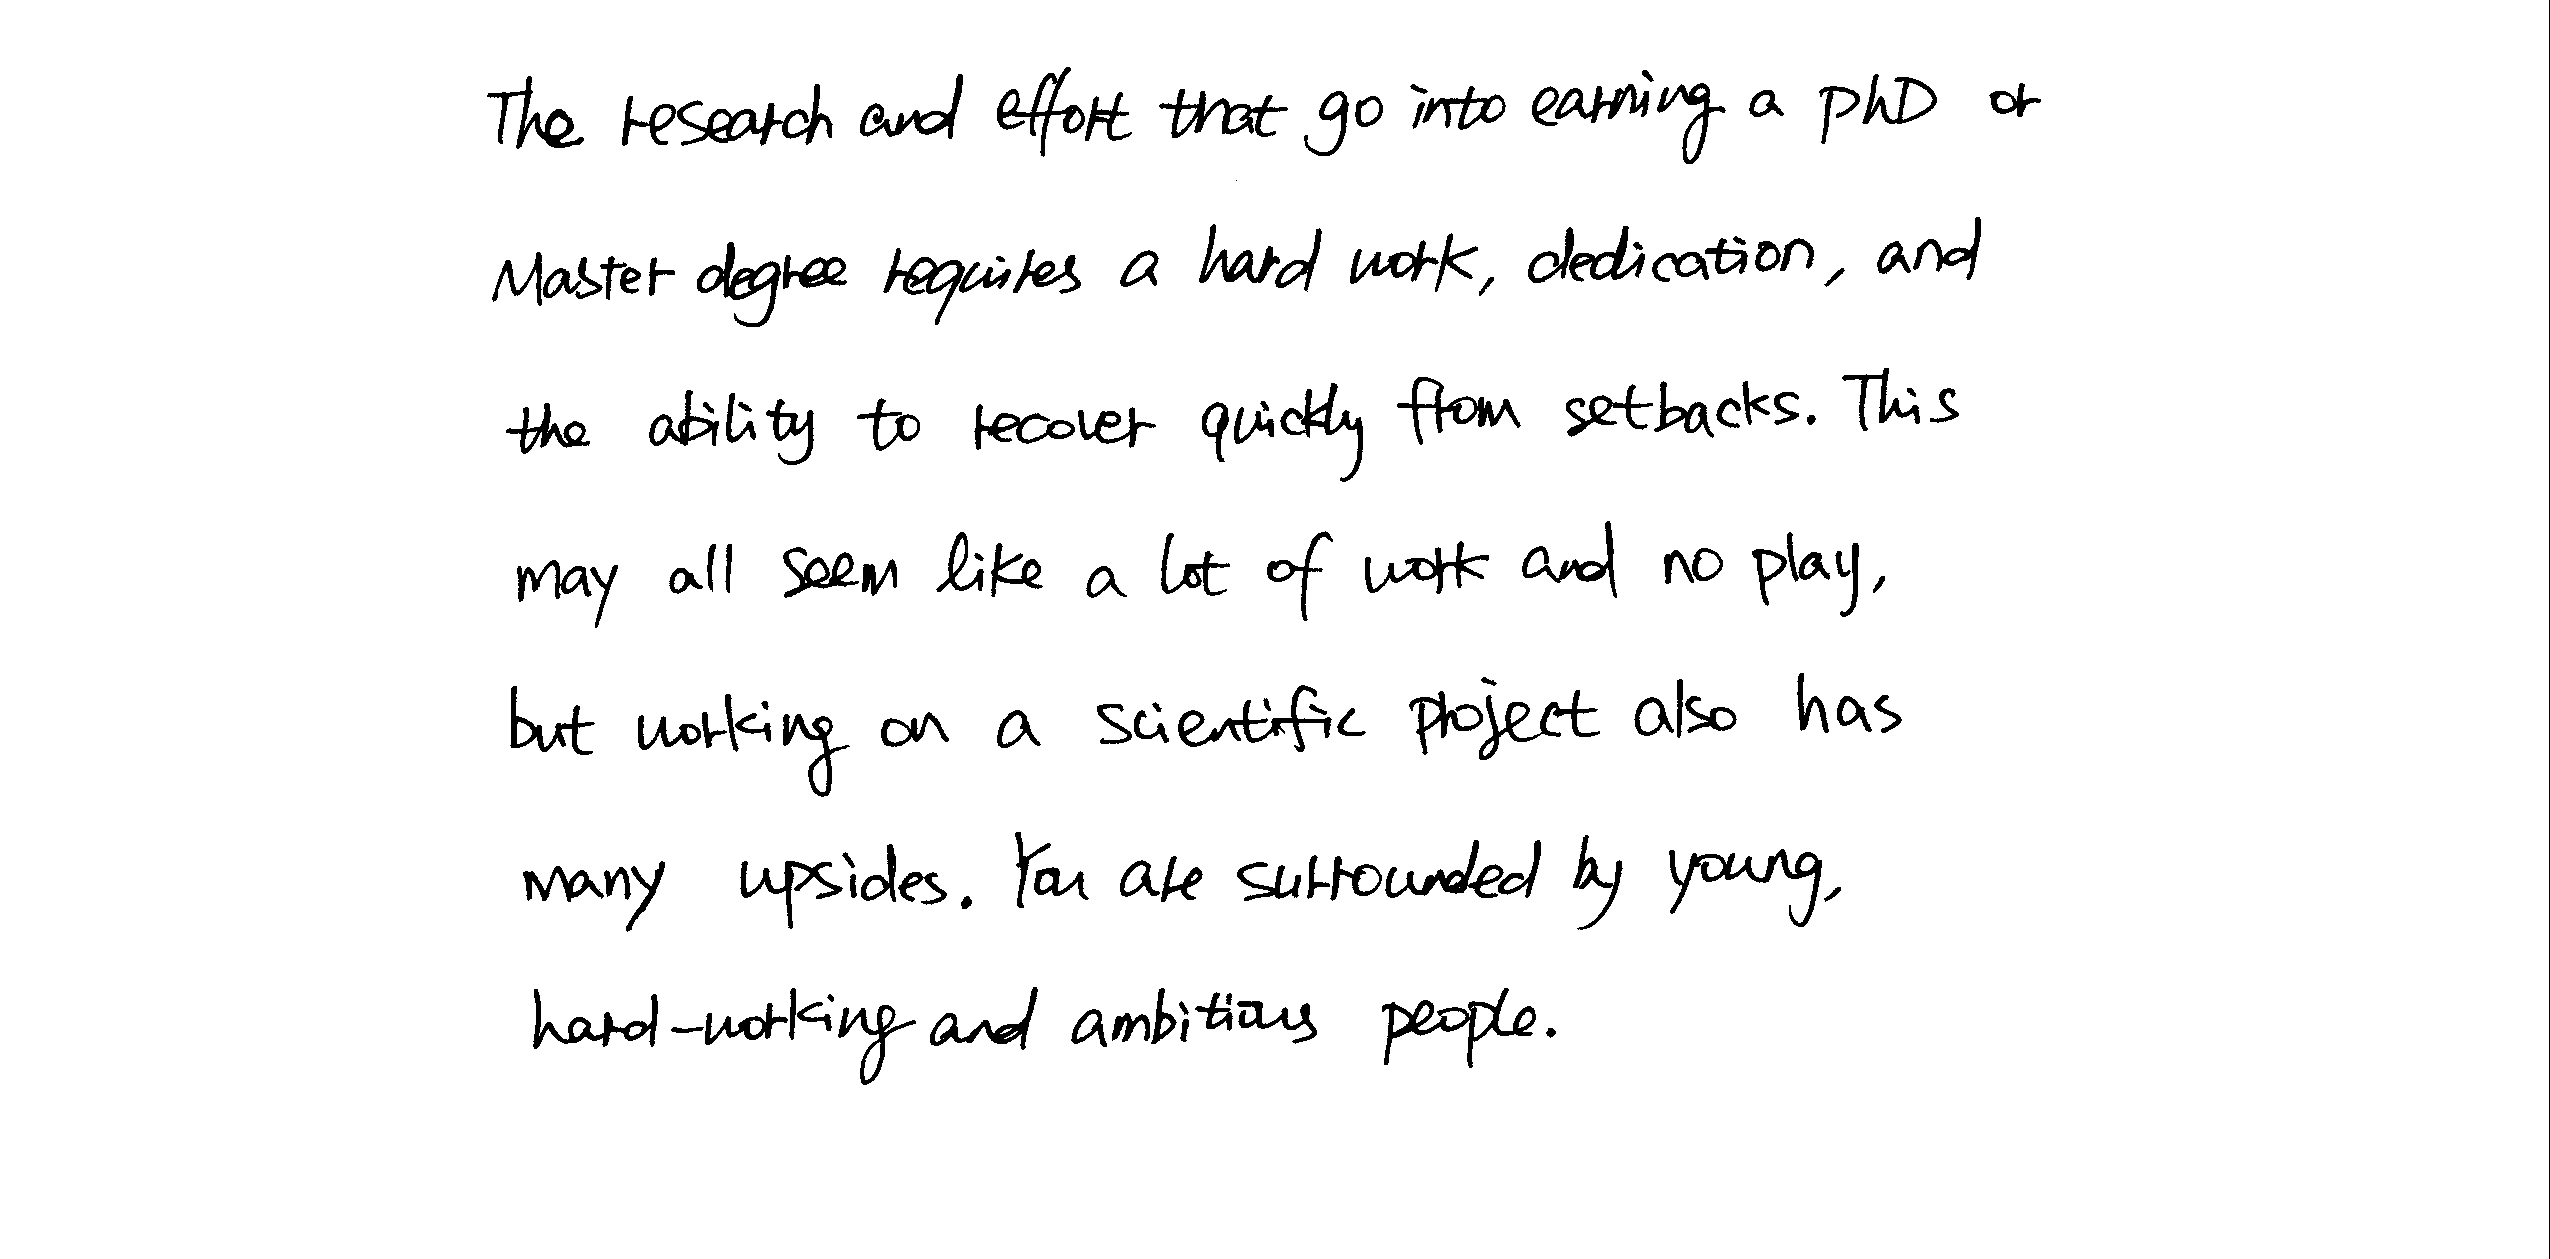 The research and effort that go into earning a phD or
Master degree requires a hard work, dedication, and
the ability to recover quickly from setbacks. This
may all seem like a lot of work and no play,
but working on a scientific project also has
many upsides. You are surrounded by young,
hard-working and ambitious people.